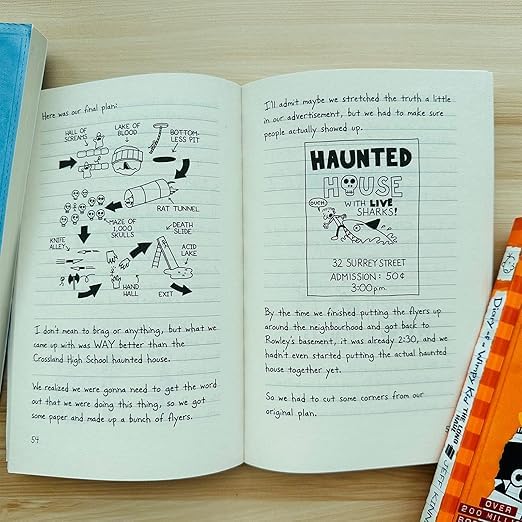 Here was our final plan:
HALL OF
SCREAMS
LAKE OF
BLOOD
BOTTOM-
LESS PIT
RAT TUNNEL
MAZE OF
1,000
SKULLS
KNIFE
ALLEY
DEATH
SLIDE
ACID
LAKE
HAND
HALL
EXIT
I don't mean to brag or anything, but what we
came up with was WAY better than the
Crossland High School haunted house.
We realized we were gonna need to get the word
out that we were doing this thing, so we got
some paper and made up a bunch of flyers.
54
I'll admit maybe we stretched the truth a little
in our advertisement, but we had to make sure
people actually showed up.
HAUNTED
HOUSE
WITH LIVE
SHARKS!
OUCH
32 SURREY STREET
ADMISSION: 50¢
3:00pm
By the time we finished putting the flyers up
around the neighbourhood and got back to
Rowley's basement, it was already 2:30, and we
hadn't even started putting the actual haunted
house together yet.
So we had to cut some corners from our
original plan.
Diary of a Wimpy Kid THE LONG
HAUL
JEFF KINN
OVER
200 MILLI